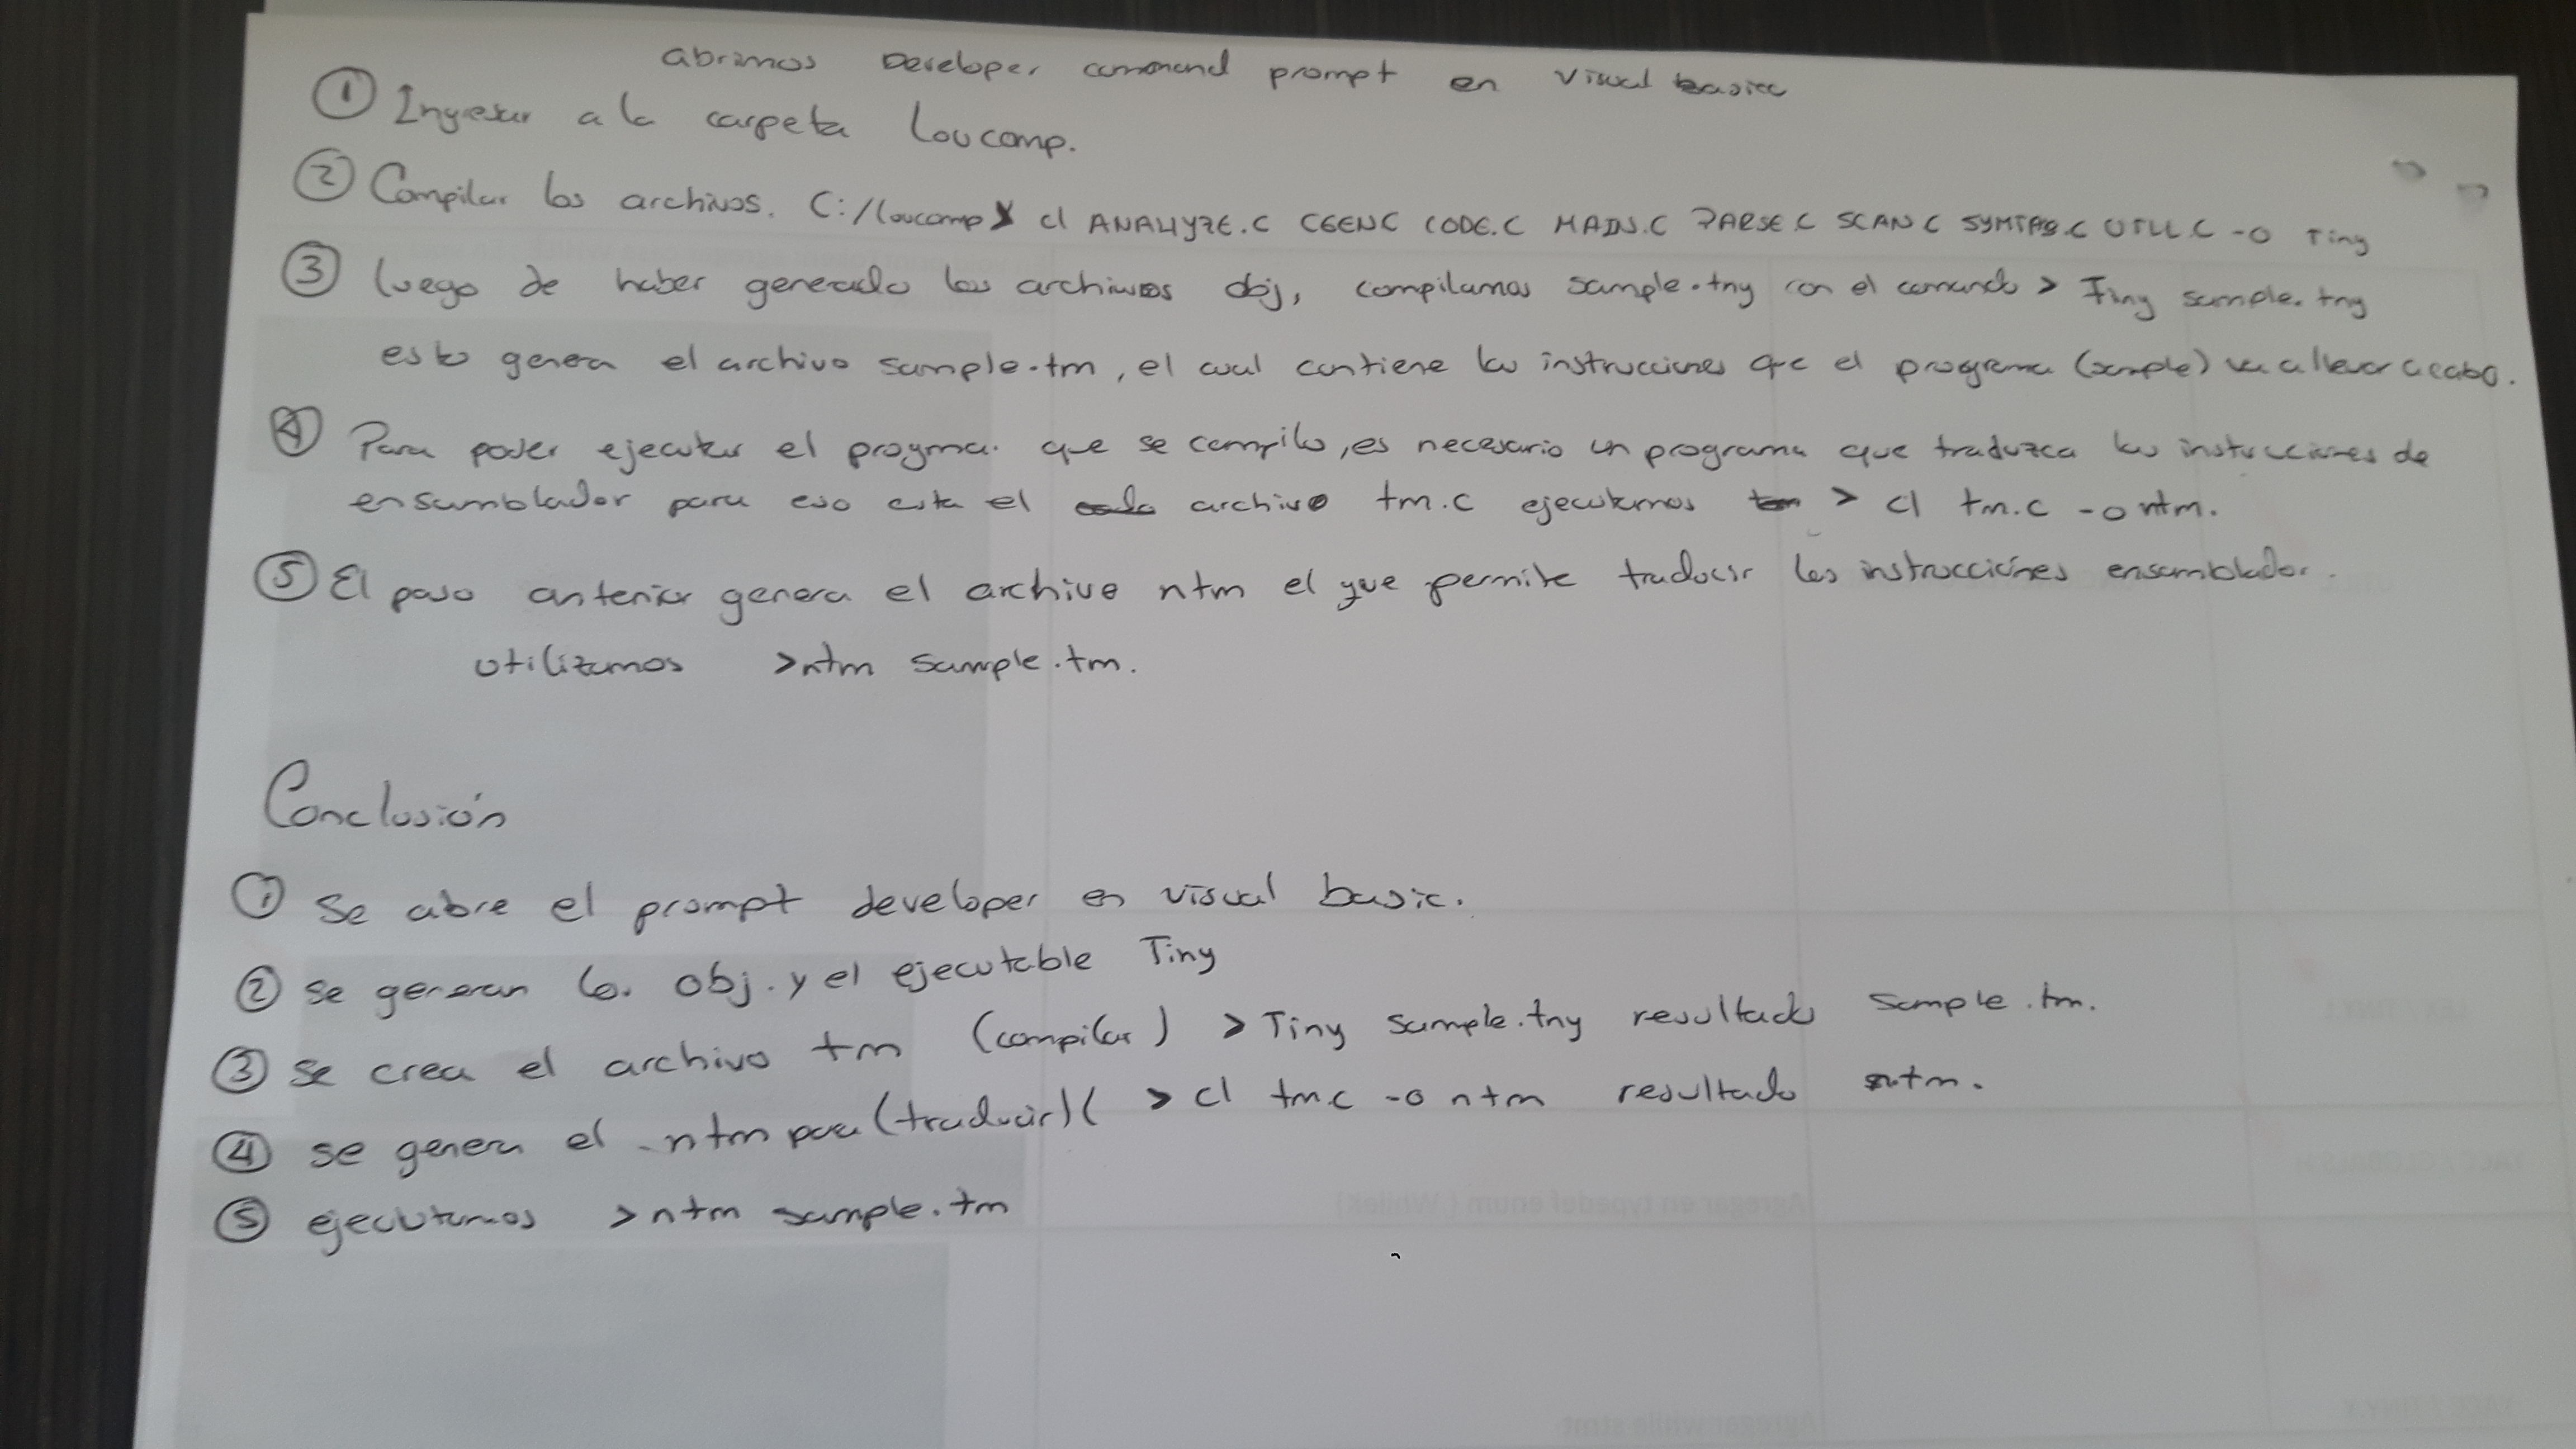 abrimos Developer command prompt en Visual basic
① Ingresar a la carpeta loucomp.
② Compilar los archivos. C:/loucomp> cl ANALYZE.C CGEN.C CODE.C MAIN.C PARSE.C SCAN.C SYMTAB.C UTIL.C -o Tiny
③ luego de haber generado los archivos obj, compilamos sample.tny con el comando > Tiny sample.tny
esto genera el archivo sample.tm, el cual contiene las instrucciones que el programa (sample) va a llevar a cabo.
④ Para poder ejecutar el progma. que se compilo, es necesario un programa que traduzca las instrucciones de
ensamblador para eso esta el archivo tm.c ejecutamos > cl tm.c -o ntm.
⑤ El paso anterior genera el archivo ntm el que permite traducir las instrucciones ensamblador.
utilizamos >ntm sample.tm.
Conclusión
① Se abre el prompt developer en visual basic.
② se generan los obj. y el ejecutable Tiny
③ se crea el archivo tm (compilar) > Tiny sample.tny resultado sample.tm.
④ se genera el .ntm para (traducir)( > cl tm.c -o ntm resultado ntm.
⑤ ejecutamos >ntm sample.tm